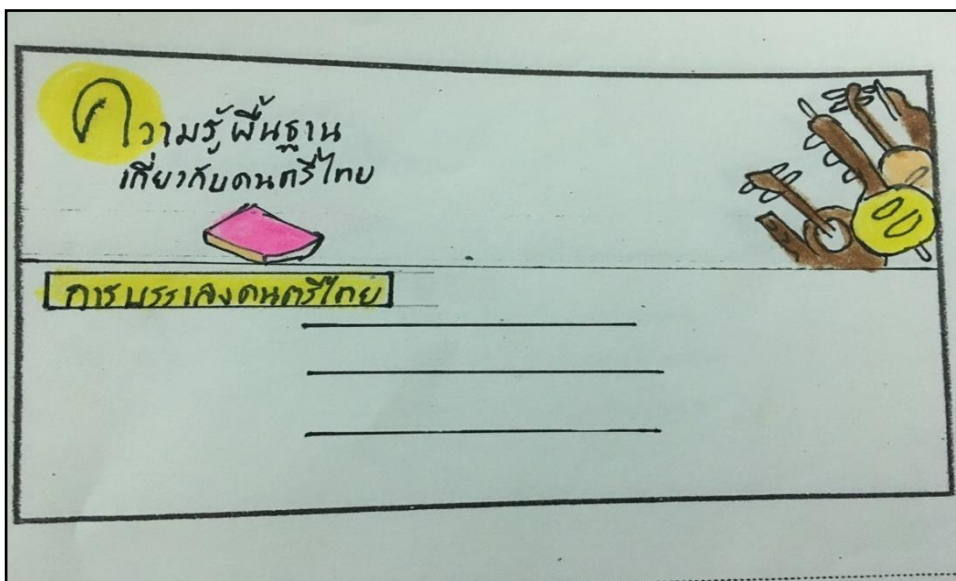 ความรู้พื้นฐาน
เกี่ยวกับดนตรีไทย
การบรรเลงดนตรีไทย